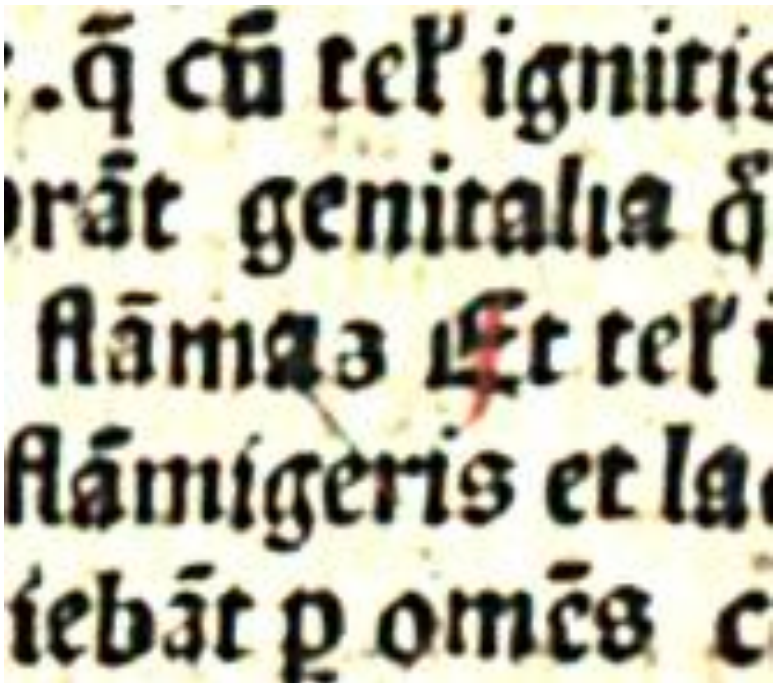 .q̄ cū tel̕ ignitis
rāt genitalia q̄
flāmaꝫ Et tel̕
flāmigeris et la
iebāt ꝑ omēs